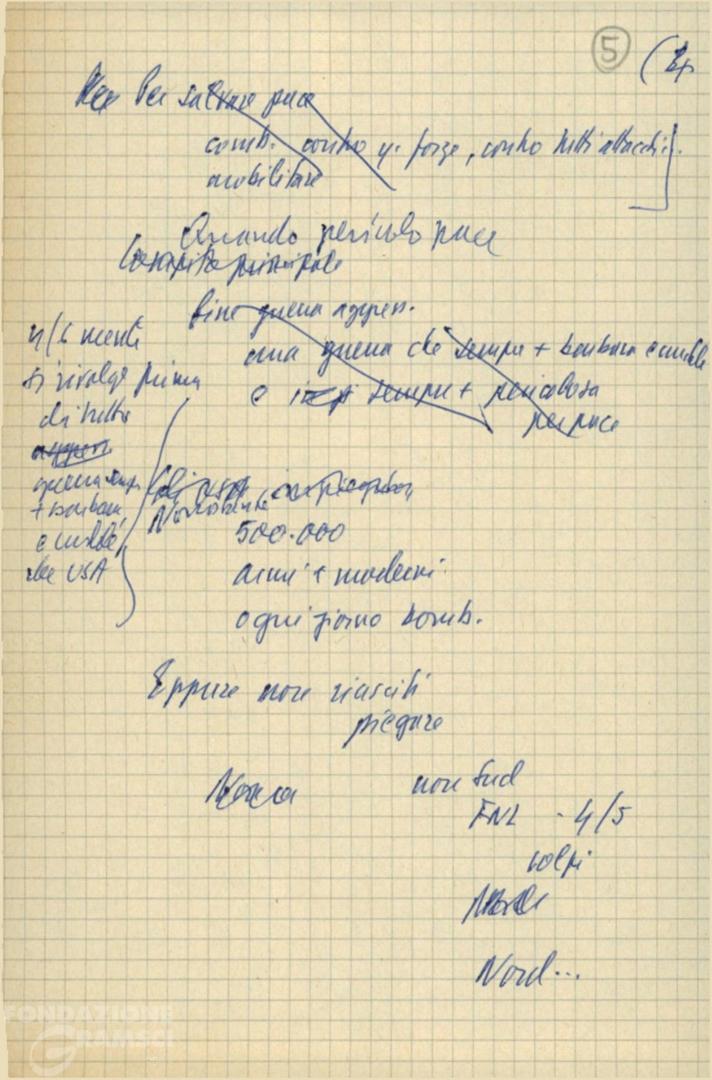 5
Per salvare pace
comb. contro q. forze, contro tutti attacchi.
mobilitare
Quando pericolo pace
Compito principale
fine guerra aggress.
una guerra che sempre + barbara e crudele
e sempre + pericolosa
per pace
n/ mente
si rivolge prima
di tutto
guerra sempre
+ barbara
e crudele
che USA
Nonostante
500.000
armi + moderni
ogni giorno bomb.
Eppure non riusciti
piegare
non Sud
FNL - 4/5
colpi
Nord...
FONDAZIONE
GRAMSCI